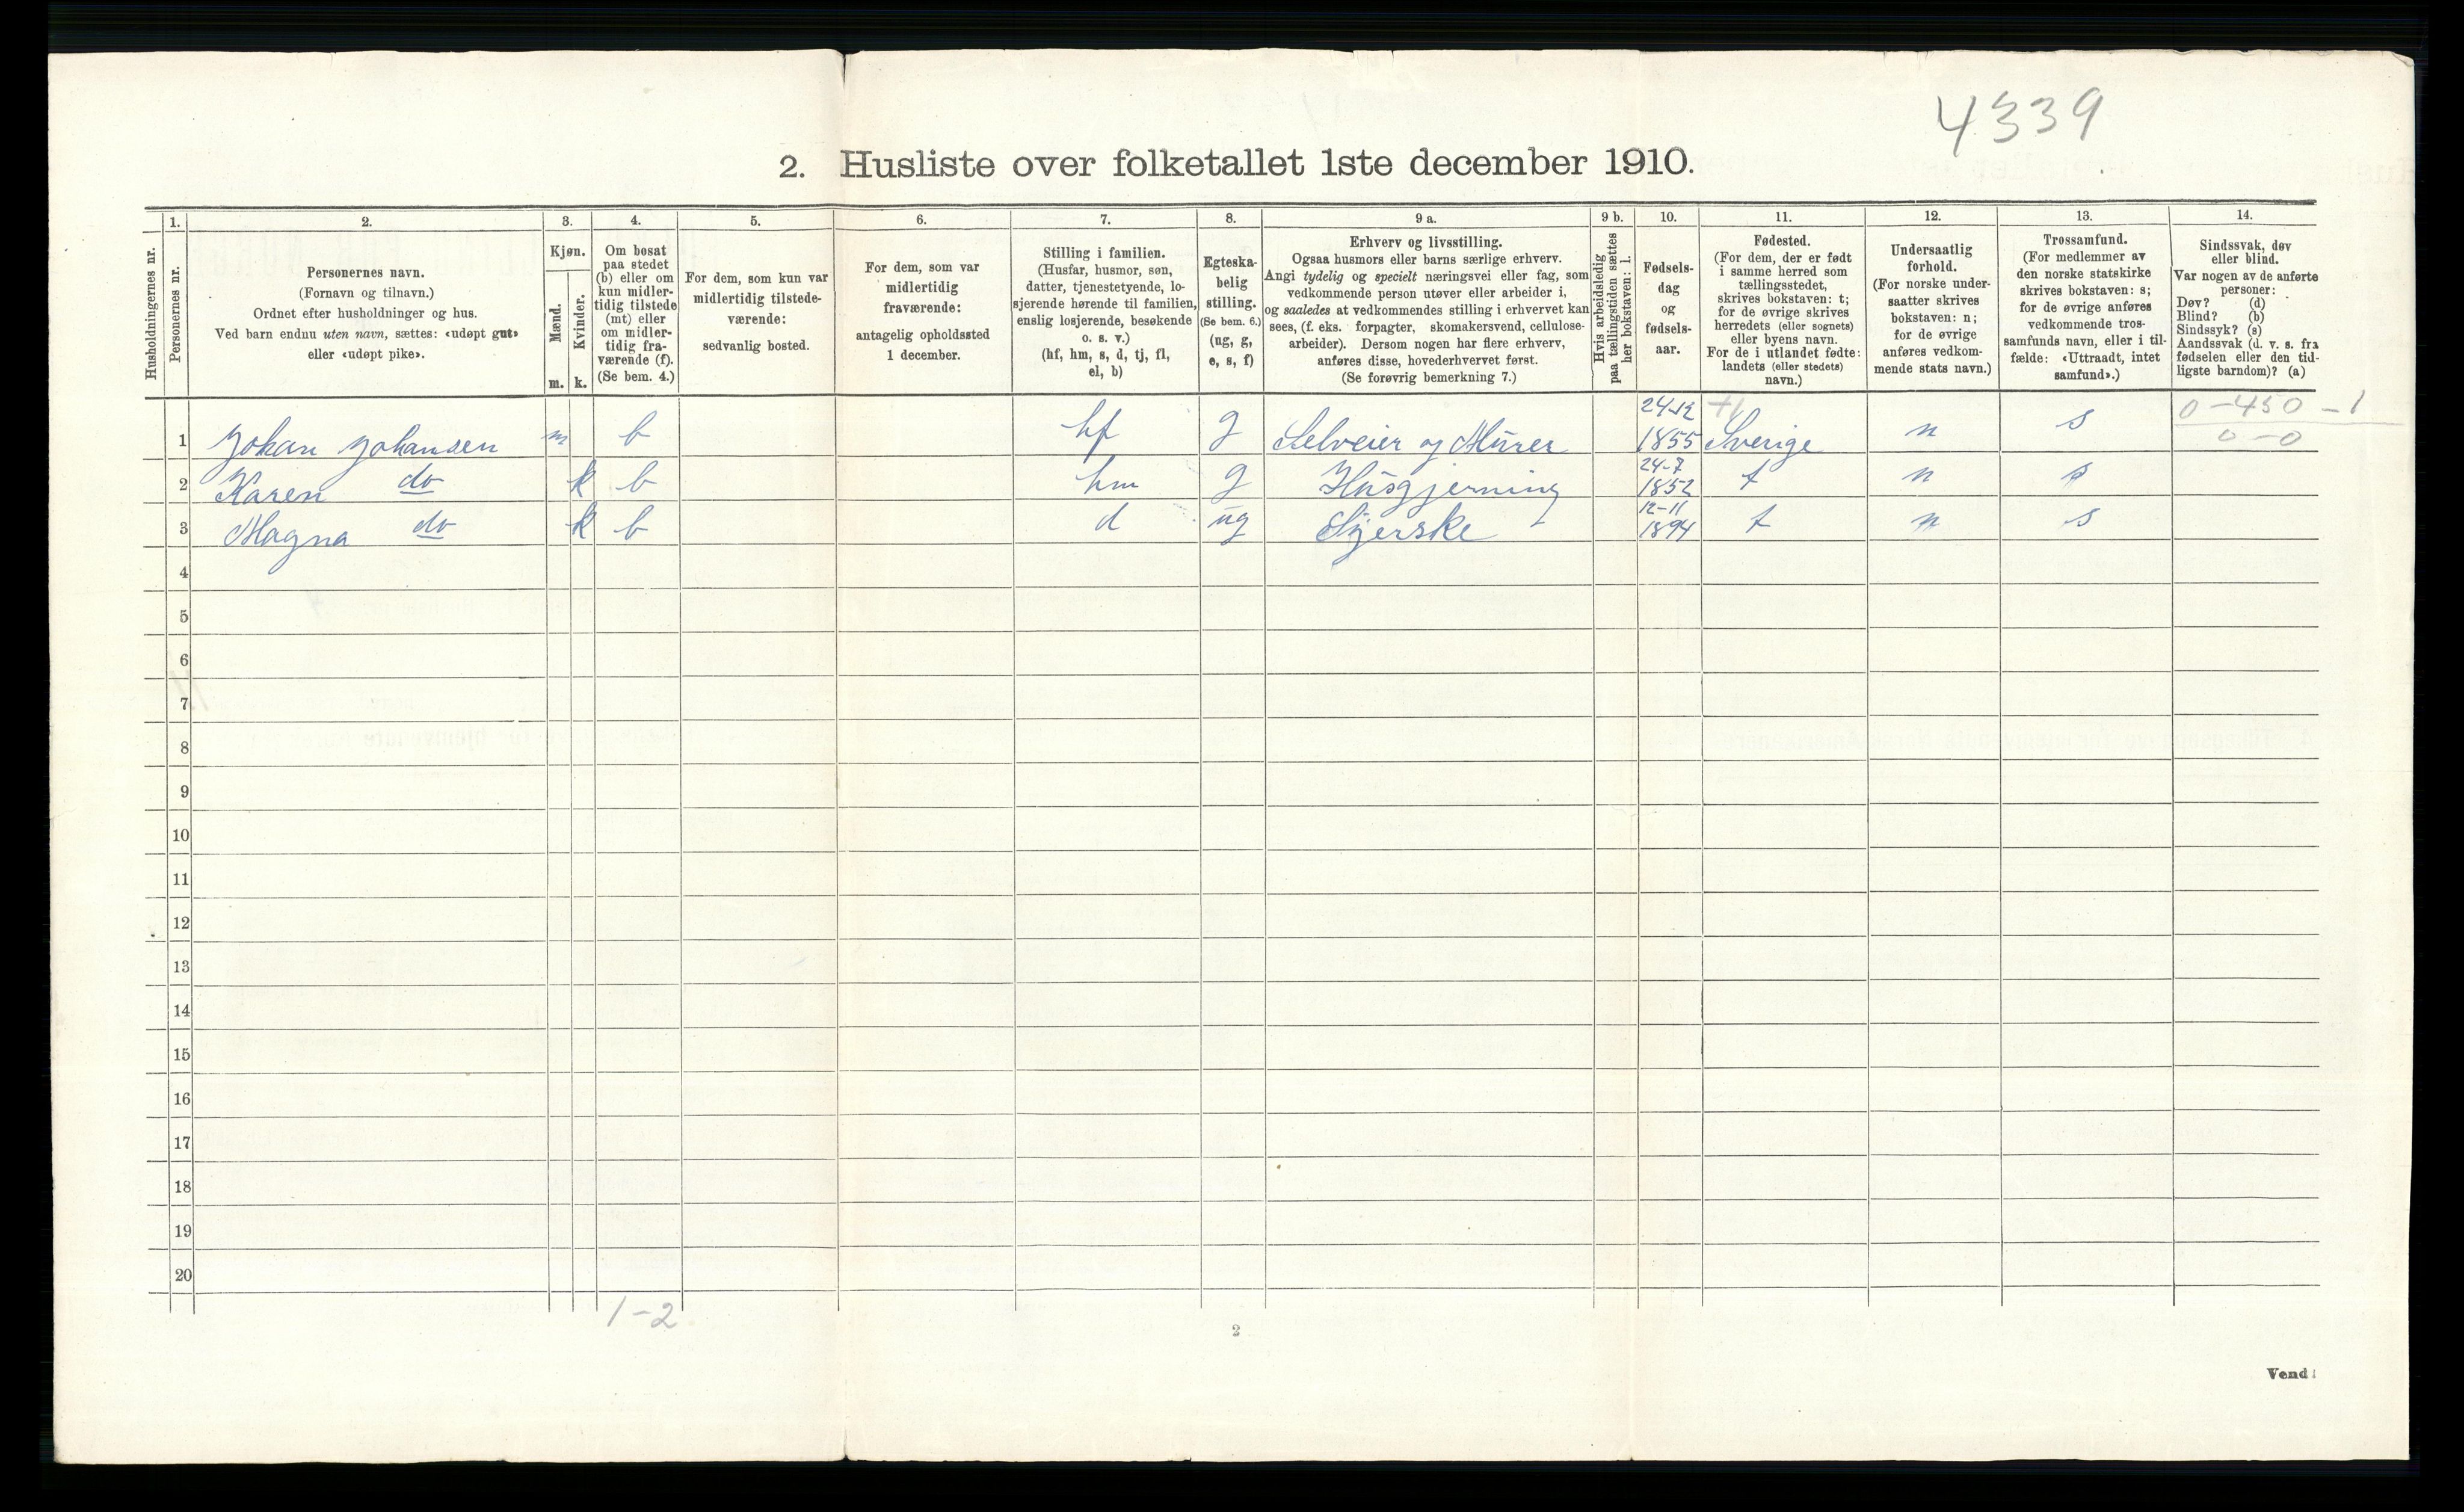 4339
2. Husliste over folketallet 1ste december 1910.
Husholdningernes nr.
1.
Personernes nr.
2.
Personernes navn.
(Fornavn og tilnavn.)
Ordnet efter husholdninger og hus.
Ved barn endnu uten navn, sættes: «udøpt gut»
eller «udøpt pike».
3.
Kjøn.
Mænd.
Kvinder.
m. k.
4.
Om bosat
paa stedet
(b) eller om
kun midler-
tidig tilstede
(mt) eller
om midler-
tidig fra-
værende (f).
(Se bem. 4.)
5.
For dem, som kun var
midlertidig tilstede-
værende:
sedvanlig bosted.
6.
For dem, som var
midlertidig
fraværende:
antagelig opholdssted
1 december.
7.
Stilling i familien.
(Husfar, husmor, søn,
datter, tjenestetyende, lo-
sjerende hørende til familien,
enslig losjerende, besøkende
o. s. v.)
(hf, hm, s, d, tj, fl,
el, b)
8.
Egteska-
belig
stilling.
(Se bem. 6.)
(ug, g,
e, s, f)
9 a.
Erhverv og livsstilling.
Ogsaa husmors eller barns særlige erhverv.
Angi tydelig og specielt næringsvei eller fag, som
vedkommende person utøver eller arbeider i,
og saaledes at vedkommendes stilling i erhvervet kan
sees, (f. eks. forpagter, skomakersvend, cellulose-
arbeider). Dersom nogen har flere erhverv,
anføres disse, hovederhvervet først.
(Se forøvrig bemerkning 7.)
9 b.
Hvis arbeidsledig
paa tællingstiden sættes
her bokstaven: l.
10.
Fødsels-
dag
og
fødsels-
aar.
11.
Fødested.
(For dem, der er født
i samme herred som
tællingsstedet,
skrives bokstaven: t;
for de øvrige skrives
herredets (eller sognets)
eller byens navn.
For de i utlandet fødte:
landets (eller stedets)
navn.)
12.
Undersaatlig
forhold.
(For norske under-
saatter skrives
bokstaven: n;
for de øvrige
anføres vedkom-
mende stats navn.)
13.
Trossamfund.
(For medlemmer av
den norske statskirke
skrives bokstaven: s;
for de øvrige anføres
vedkommende tros-
samfunds navn, eller i til-
fælde: «Uttraadt, intet
samfund».)
14.
Sindssvak, døv
eller blind.
Var nogen av de anførte
personer:
Døv? (d)
Blind? (b)
Sindssyk? (s)
Aandssvak (d. v. s. fra
fødselen eller den tid-
ligste barndom)? (a)
0-450-1
0-0
1 Johan Johansen m b hf g Selveier og Murer 24-12 1855 Sverige n s
2 Karen do k b hm g Husgjerning 24-7 1852 t n s
3 Magna do k b d ug Syerske 12-11 1894 t n s
4
5
6
7
8
9
10
11
12
13
14
15
16
17
18
19
20
1-2
2
Vend